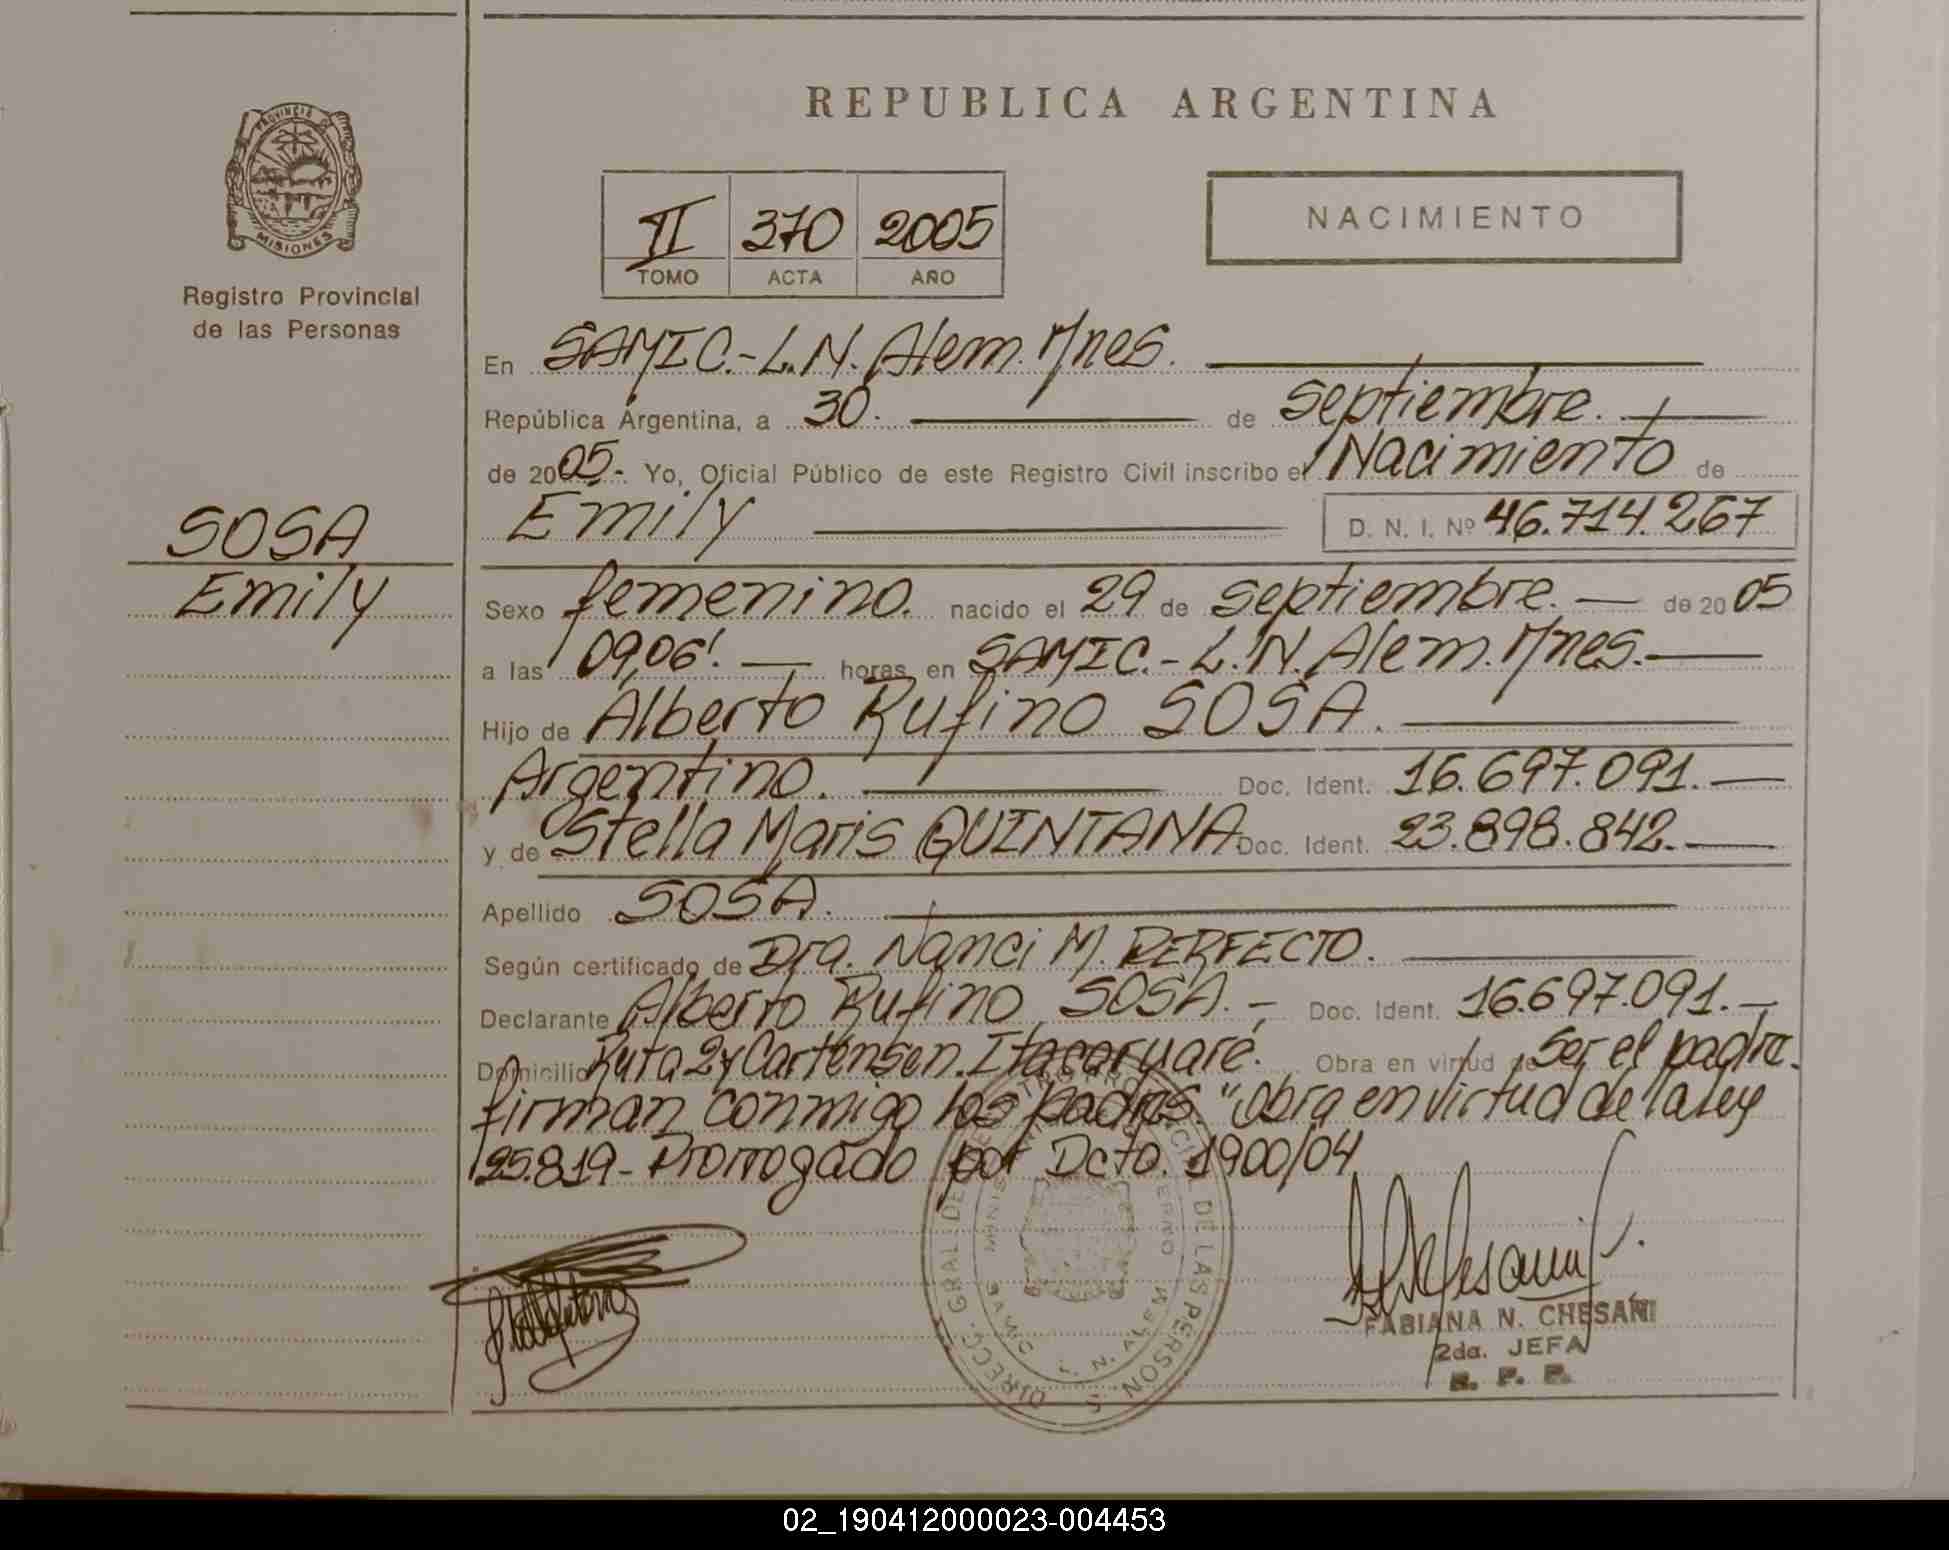 REPUBLICA ARGENTINA
PROVINCIA DE
MISIONES
Registro Provincial
de las Personas
II 370 2005
TOMO ACTA AÑO
NACIMIENTO
SOSA
Emily
En SAMIC.-L.N. Alem. Mnes.
República Argentina, a 30. de septiembre.
de 2005.- Yo, Oficial Público de este Registro Civil inscribo el Nacimiento de
Emily D. N. I. Nº 46.714.267
Sexo femenino. nacido el 29 de septiembre. de 2005
a las 09,06'. horas en SAMIC.-L.N. Alem. Mnes.-
Hijo de Alberto Rufino SOSA.
Argentino. Doc. Ident. 16.697.091.-
y de Stella Maris QUINTANA Doc. Ident. 23.898.842.-
Apellido SOSA.
Según certificado de Dra. Nanci M. PERFECTO.
Declarante Alberto Rufino SOSA.- Doc. Ident. 16.697.091.-
Domicilio Ruta 2 y Cartensen. Itacaruaré. Obra en virtud de Ser el padre.
firman conmigo los padres. "Obra en virtud de la ley
25.819- Prorrogado por Dcto. 1900/04
DIRECC. GRAL. DEL REGISTRO PROVINCIAL DE LAS PERSONAS
L. N. ALEM
FABIANA N. CHESANI
2da. JEFA
R. P. P.
02_190412000023-004453